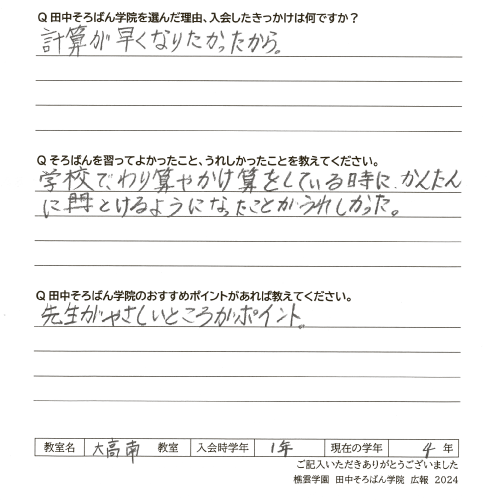 Q 田中そろばん学院を選んだ理由、入会したきっかけは何ですか？
計算が早くなりたかったから。
Q そろばんを習ってよかったこと、うれしかったことを教えてください。
学校で、わり算やかけ算をしている時に、かんたん
にとけるようになったことがうれしかった。
Q 田中そろばん学院のおすすめポイントがあれば教えてください。
先生がやさしいところがポイント。
教室名 大高南 教室 入会時学年 1年 現在の学年 4 年
ご記入いただきありがとうございました
樵雲学園 田中そろばん学院 広報 2024